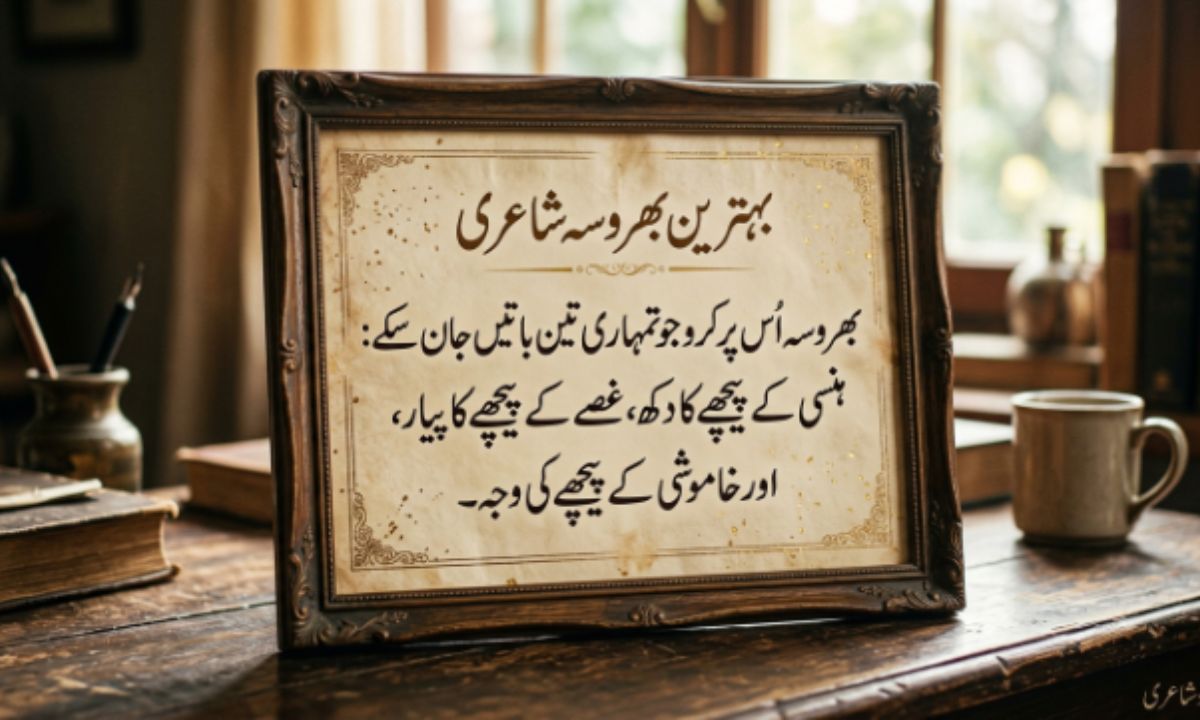 بہترین بھروسہ شاعری
بھروسہ اُس پر کرو جو تمہاری تین باتیں جان سکے:
ہنسی کے پیچھے کا دکھ، غصے کے پیچھے کا پیار،
اور خاموشی کے پیچھے کی وجہ۔
شاعری